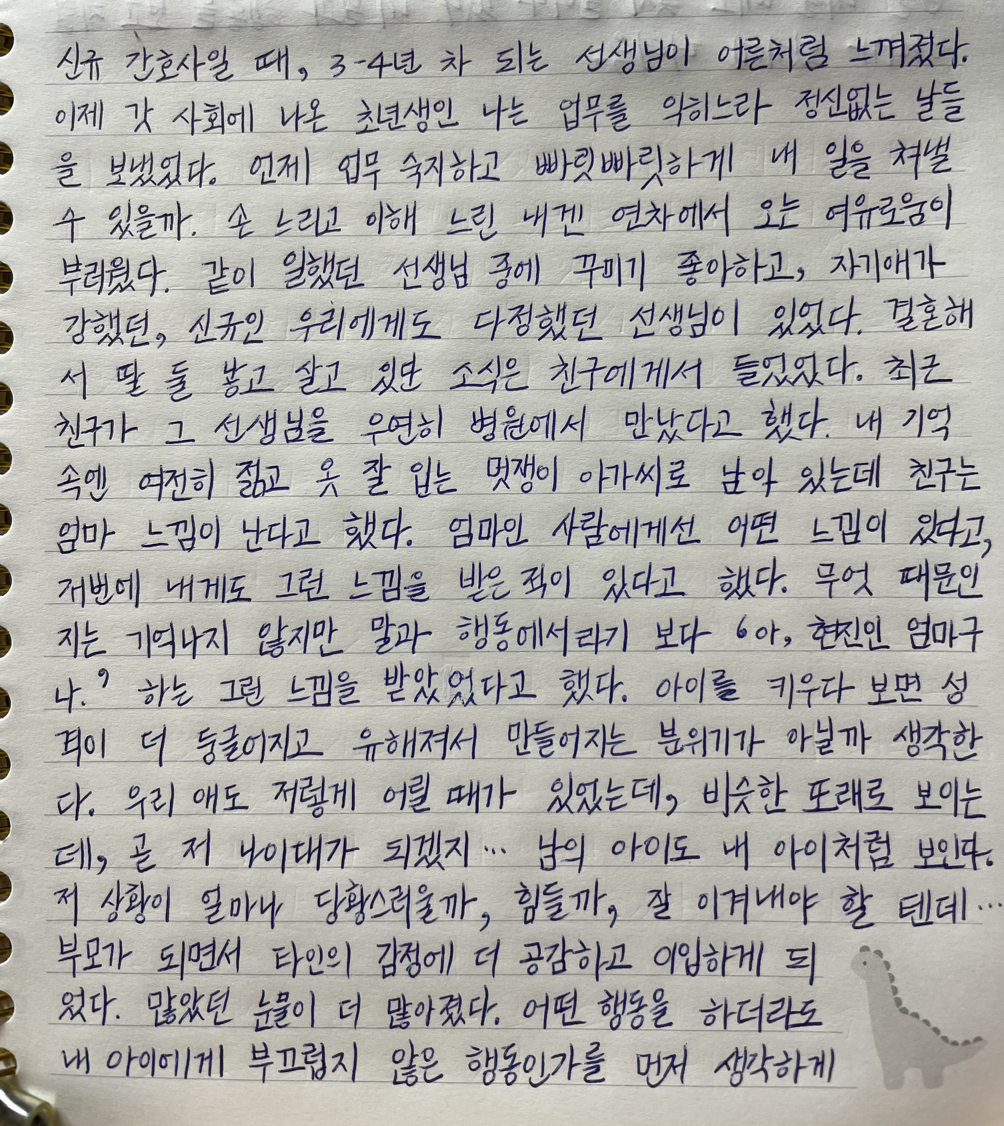 신규 간호사일 때, 3-4년 차 되는 선생님이 어른처럼 느껴졌다.
이제 갓 사회에 나온 초년생인 나는 업무를 익히느라 정신없는 날들
을 보냈었다. 언제 업무 숙지하고 빠릿빠릿하게 내 일을 쳐낼
수 있을까. 손 느리고 이해 느린 내겐 연차에서 오는 여유로움이
부러웠다. 같이 일했던 선생님 중에 꾸미기 좋아하고, 자기애가
강했던, 신규인 우리에게도 다정했던 선생님이 있었다. 결혼해
서 딸 둘 낳고 살고 있단 소식은 친구에게서 들었었다. 최근
친구가 그 선생님을 우연히 병원에서 만났다고 했다. 내 기억
속엔 여전히 젊고 옷 잘 입는 멋쟁이 아가씨로 남아 있는데 친구는
엄마 느낌이 난다고 했다. 엄마인 사람에게선 어떤 느낌이 있다고,
저번에 내게도 그런 느낌을 받은 적이 있다고 했다. 무엇 때문인
지는 기억나지 않지만 말과 행동에서라기 보다 '아, 현진인 엄마구
나.' 하는 그런 느낌을 받았었다고 했다. 아이를 키우다 보면 성
격이 더 둥글어지고 유해져서 만들어지는 분위기가 아닐까 생각한
다. 우리 애도 저렇게 어릴 때가 있었는데, 비슷한 또래로 보이는
데, 곧 저 나이대가 되겠지… 남의 아이도 내 아이처럼 보인다.
저 상황이 얼마나 당황스러울까, 힘들까, 잘 이겨내야 할 텐데…
부모가 되면서 타인의 감정에 더 공감하고 이입하게 되
었다. 많았던 눈물이 더 많아졌다. 어떤 행동을 하더라도
내 아이에게 부끄럽지 않은 행동인가를 먼저 생각하게